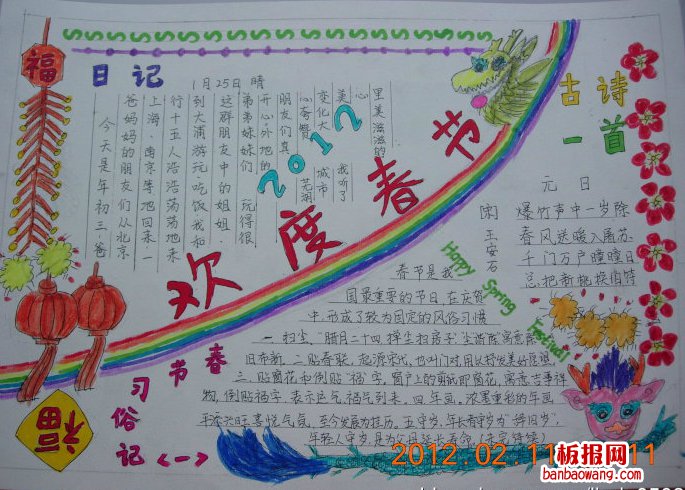 福
日记
1月25日 晴
今天是年初三，爸
爸妈妈的朋友们从北京
上海、南京等地回来一
行十五人浩浩荡荡地来
到大浦游玩吃饭我和
这群朋友中的姐姐、
弟弟妹妹们 玩得很
开心外地的
朋友们真
心夸赞 芜湖
变化大 城市
美 我听了
心
里美滋滋的
2012
欢度春节
Happy Spring Festival
古诗
一首
元日
[宋] 王安石
爆竹声中一岁除
春风送暖入屠苏
千门万户曈曈日
总把新桃换旧符
春节习俗记<一>
春节是我
国最重要的节日,在庆贺
中,形成了较为固定的风俗习惯
一.扫尘,"腊月二十四,掸尘扫房子"
旧布新.二.贴春联,起源宋代,
三.贴窗花和倒贴"福"字,窗户上的剪纸即窗花,寓意吉事祥
物,倒贴福字,表示运气福气到来.四.年画,浓墨重彩的年画
五.守岁,年长者守岁为"辞旧岁",
年轻人守岁,是为父母延长寿命
福
2012.02.11
11
板报网
banbaowang.com